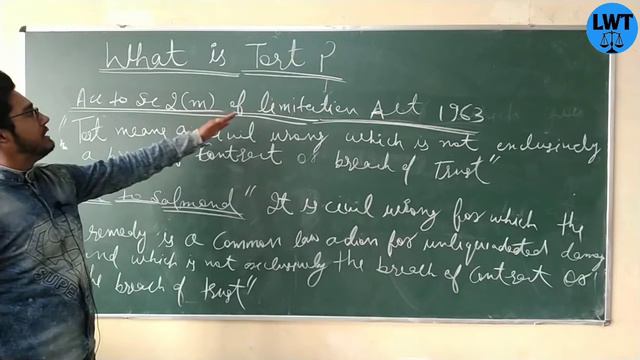 LWT
What is Tort ?
Acc to Sc 2(m) of limitation Act 1963
"Tort means a civil wrong which is not exclusively
a contract or breach of Trust"
to Salmond" It is civil wrong for which the
remedy is a common law action for unliquidated damag
and which is not exclusively the breach of contract or
the breach of trust"
SUPE